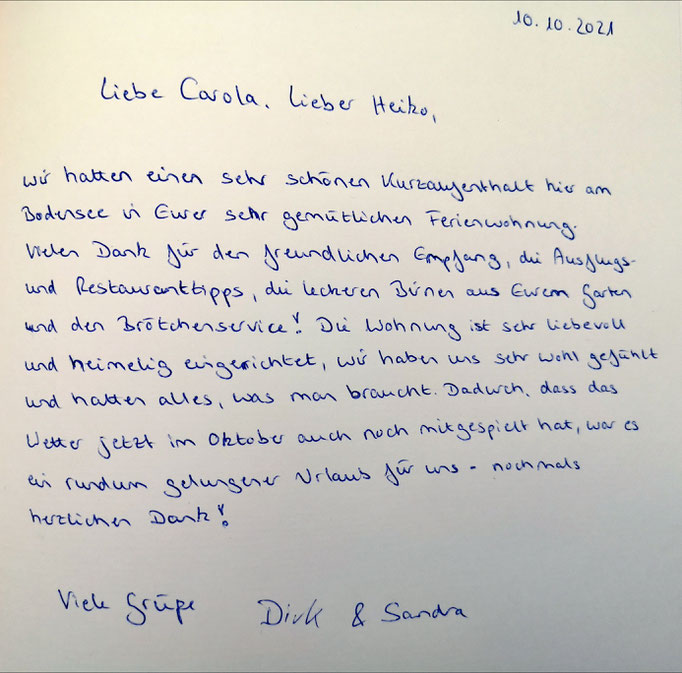 10.10.2021
Liebe Carola, Lieber Heiko,
wir hatten einen sehr schönen Kurzaufenthalt hier am
Bodensee in Eurer sehr gemütlichen Ferienwohnung.
Vielen Dank für den freundlichen Empfang, die Ausflugs-
und Restauranttipps, die leckeren Birnen aus Eurem Garten
und den Brötchenservice! Die Wohnung ist sehr liebevoll
und heimelig eingerichtet, wir haben uns sehr wohl gefühlt
und hatten alles, was man braucht. Dadurch, dass das
Wetter jetzt im Oktober auch noch mitgespielt hat, war es
ein rundum gelungener Urlaub für uns - nochmals
herzlichen Dank!
Viele Grüße Dirk & Sandra